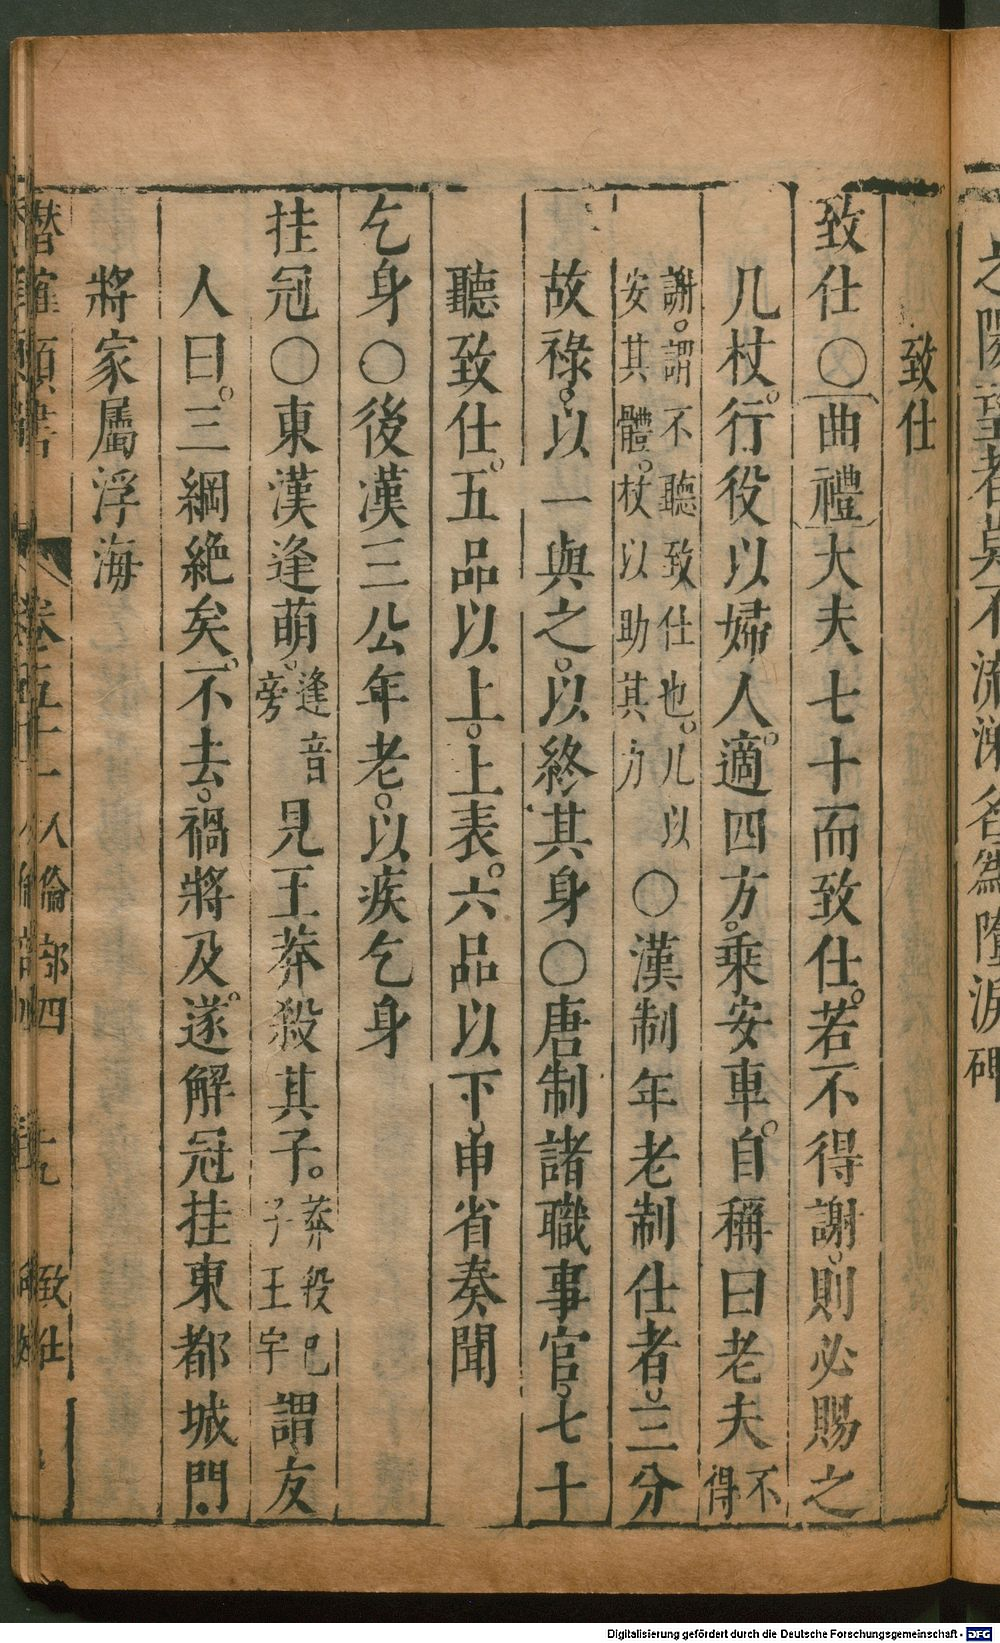 之隙望者莫不流涕名為墮淚碑
致仕
致仕○曲禮大夫七十而致仕。若不得謝。則必賜之
几杖。行役以婦人。適四方。乘安車。自稱曰老夫不得
謝。謂不聽致仕也。几以安其體。杖以助其力○漢制年老制仕者。三分
故祿。以一與之。以終其身○唐制諸職事官。七十
聽致仕。五品以上。上表。六品以下。申省奏聞
乞身○後漢三公年老。以疾乞身
挂冠○東漢逢萌。逢音旁見王莽殺其子。莽殺己子王宇謂友
人曰。三綱絶矣。不去。禍將及。遂解冠挂東都城門.
將家屬浮海
潛確類書 卷五十一人倫部四 十九 致仕
Digitalisierung gefördert durch die Deutsche Forschungsgemeinschaft - DFG